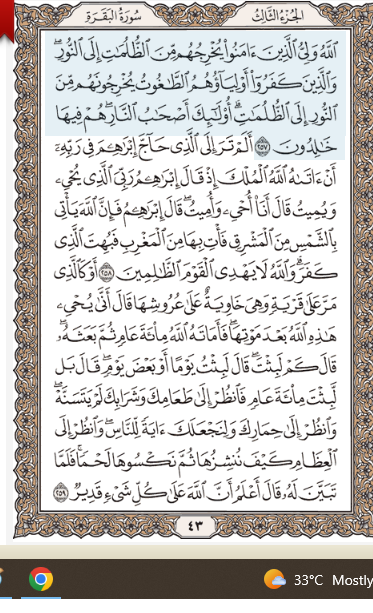 الجزء الثالث
سورة البقرة
ٱللَّهُ وَلِىُّ ٱلَّذِينَ ءَامَنُوا۟ يُخْرِجُهُم مِّنَ ٱلظُّلُمَـٰتِ إِلَى ٱلنُّورِ ۖ
وَٱلَّذِينَ كَفَرُوٓا۟ أَوْلِيَآؤُهُمُ ٱلطَّـٰغُوتُ يُخْرِجُونَهُم مِّنَ
ٱلنُّورِ إِلَى ٱلظُّلُمَـٰتِ ۗ أُو۟لَـٰٓئِكَ أَصْحَـٰبُ ٱلنَّارِ ۖ هُمْ فِيهَا
خَـٰلِدُونَ ٢٥٧ أَلَمْ تَرَ إِلَى ٱلَّذِى حَآجَّ إِبْرَٰهِـۧمَ فِى رَبِّهِۦٓ
أَنْ ءَاتَىٰهُ ٱللَّهُ ٱلْمُلْكَ إِذْ قَالَ إِبْرَٰهِـۧمُ رَبِّىَ ٱلَّذِى يُحْىِۦ
وَيُمِيتُ قَالَ أَنَا۠ أُحْىِۦ وَأُمِيتُ ۖ قَالَ إِبْرَٰهِـۧمُ فَإِنَّ ٱللَّهَ يَأْتِى
بِٱلشَّمْسِ مِنَ ٱلْمَشْرِقِ فَأْتِ بِهَا مِنَ ٱلْمَغْرِبِ فَبُهِتَ ٱلَّذِى
كَفَرَ ۗ وَٱللَّهُ لَا يَهْدِى ٱلْقَوْمَ ٱلظَّـٰلِمِينَ ٢٥٨ أَوْ كَٱلَّذِى
مَرَّ عَلَىٰ قَرْيَةٍ وَهِىَ خَاوِيَةٌ عَلَىٰ عُرُوشِهَا قَالَ أَنَّىٰ يُحْىِۦ
هَـٰذِهِ ٱللَّهُ بَعْدَ مَوْتِهَا ۖ فَأَمَاتَهُ ٱللَّهُ مِا۟ئَةَ عَامٍ ثُمَّ بَعَثَهُۥ ۖ
قَالَ كَمْ لَبِثْتَ ۖ قَالَ لَبِثْتُ يَوْمًا أَوْ بَعْضَ يَوْمٍ ۖ قَالَ بَل
لَّبِثْتَ مِا۟ئَةَ عَامٍ فَٱنظُرْ إِلَىٰ طَعَامِكَ وَشَرَابِكَ لَمْ يَتَسَنَّهْ ۖ
وَٱنظُرْ إِلَىٰ حِمَارِكَ وَلِنَجْعَلَكَ ءَايَةً لِّلنَّاسِ ۖ وَٱنظُرْ إِلَى
ٱلْعِظَامِ كَيْفَ نُنشِزُهَا ثُمَّ نَكْسُوهَا لَحْمًا ۚ فَلَمَّا
تَبَيَّنَ لَهُۥ قَالَ أَعْلَمُ أَنَّ ٱللَّهَ عَلَىٰ كُلِّ شَىْءٍ قَدِيرٌ ٢٥٩
٤٣
33°C Mostly